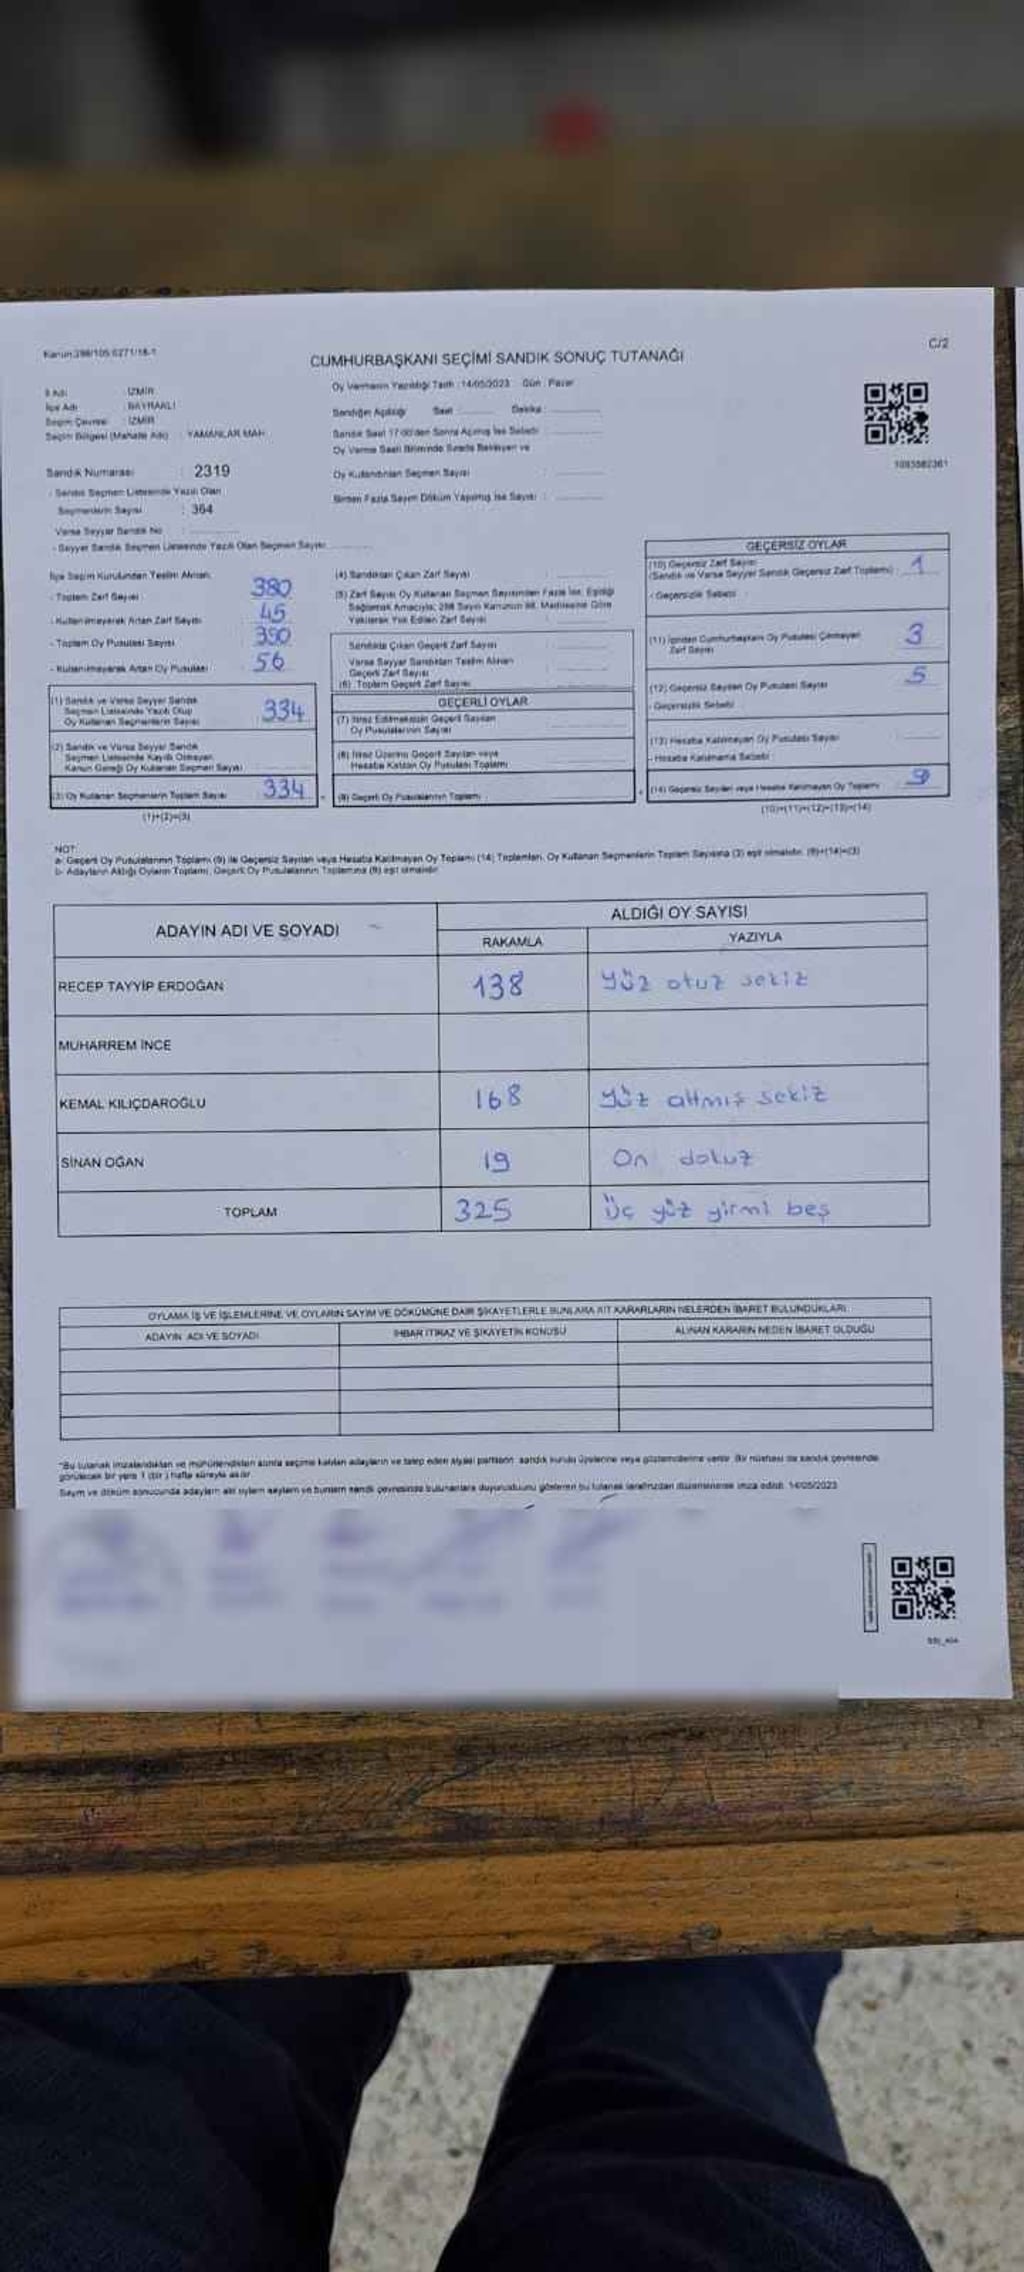 Kanun:298/105 6271/18-1
C/2
CUMHURBAŞKANI SEÇİMİ SANDIK SONUÇ TUTANAĞI
İl Adı : İZMİR
İlçe Adı : BAYRAKLI
Seçim Çevresi : İZMİR
Seçim Bölgesi (Mahalle Adı) : YAMANLAR MAH.
Oy Vermenin Yapıldığı Tarih : 14/05/2023 Gün : Pazar
Sandığın Açıldığı Saat : ............ Dakika : ............
Sandık Saat 17:00'den Sonra Açılmış İse Sebebi : ............
Oy Verme Saati Bitiminde Sırada Bekleyen ve
Oy Kullandırılan Seçmen Sayısı : ............
Birden Fazla Sayım Döküm Yapılmış İse Sayısı : ............
1093582361
Sandık Numarası : 2319
- Sandık Seçmen Listesinde Yazılı Olan
Seçmenlerin Sayısı : 364
Varsa Seyyar Sandık No : ............
- Seyyar Sandık Seçmen Listesinde Yazılı Olan Seçmen Sayısı ............
İlçe Seçim Kurulundan Teslim Alınan;
- Toplam Zarf Sayısı : 380
- Kullanılmayarak Artan Zarf Sayısı : 45
- Toplam Oy Pusulası Sayısı : 390
- Kullanılmayarak Artan Oy Pusulası : 56
(1) Sandık ve Varsa Seyyar Sandık
Seçmen Listesinde Yazılı Olup
Oy Kullanan Seçmenlerin Sayısı : 334
(2) Sandık ve Varsa Seyyar Sandık
Seçmen Listesinde Kayıtlı Olmayan
Kanun Gereği Oy Kullanan Seçmen Sayısı
(3) Oy Kullanan Seçmenlerin Toplam Sayısı : 334
(1)+(2)=(3)
(4) Sandıktan Çıkan Zarf Sayısı : ............
(5) Zarf Sayısı Oy Kullanan Seçmen Sayısından Fazla İse, Eşitliği
Sağlamak Amacıyla; 298 Sayılı Kanunun 98. Maddesine Göre
Yakılarak Yok Edilen Zarf Sayısı : ............
Sandıkta Çıkan Geçerli Zarf Sayısı
Varsa Seyyar Sandıktan Teslim Alınan
Geçerli Zarf Sayısı
(6) Toplam Geçerli Zarf Sayısı
GEÇERLİ OYLAR
(7) İtiraz Edilmeksizin Geçerli Sayılan
Oy Pusulalarının Sayısı
(8) İtiraz Üzerine Geçerli Sayılan veya
Hesaba Katılan Oy Pusulası Toplamı
(9) Geçerli Oy Pusulalarının Toplamı :
GEÇERSİZ OYLAR
(10) Geçersiz Zarf Sayısı
(Sandık ve Varsa Seyyar Sandık Geçersiz Zarf Toplamı) : 1
- Geçersizlik Sebebi :
(11) İçinden Cumhurbaşkanı Oy Pusulası Çıkmayan
Zarf Sayısı 3
(12) Geçersiz Sayılan Oy Pusulası Sayısı 5
- Geçersizlik Sebebi :
(13) Hesaba Katılmayan Oy Pusulası Sayısı
- Hesaba Katılmama Sebebi
(14) Geçersiz Sayılan veya Hesaba Katılmayan Oy Toplamı : 9
(10)+(11)+(12)+(13)=(14)
NOT:
a- Geçerli Oy Pusulalarının Toplamı (9) ile Geçersiz Sayılan veya Hesaba Katılmayan Oy Toplamı (14) Toplamları, Oy Kullanan Seçmenlerin Toplam Sayısına (3) eşit olmalıdır. (9)+(14)=(3)
b- Adayların Aldığı Oyların Toplamı, Geçerli Oy Pusulalarının Toplamına (9) eşit olmalıdır.
ADAYIN ADI VE SOYADI
ALDIĞI OY SAYISI
RAKAMLA YAZIYLA
RECEP TAYYİP ERDOĞAN 138 Yüz otuz sekiz
MUHARREM İNCE
KEMAL KILIÇDAROĞLU 168 Yüz altmış sekiz
SİNAN OĞAN 19 On dokuz
TOPLAM 325 Üç yüz yirmi beş
OYLAMA İŞ VE İŞLEMLERİNE VE OYLARIN SAYIM VE DÖKÜMÜNE DAİR ŞİKAYETLERLE BUNLARA AİT KARARLARIN NELERDEN İBARET BULUNDUKLARI
ADAYIN ADI VE SOYADI İHBAR İTİRAZ VE ŞİKAYETİN KONUSU ALINAN KARARIN NEDEN İBARET OLDUĞU
"Bu tutanak imzalandıktan ve mühürlendikten sonra seçime katılan adayların ve talep eden siyasi partilerin sandık kurulu üyelerine veya gözlemcilerine verilir. Bir nüshası da sandık çevresinde
görülecek bir yere 1 (bir) hafta süreyle asılır.
Sayım ve döküm sonucunda adayların aldığı oyların sayılarını ve bunların sandık çevresinde bulunanlara duyurulduğunu gösteren bu tutanak tarafımızdan düzenlenerek imza edildi. 14/05/2023